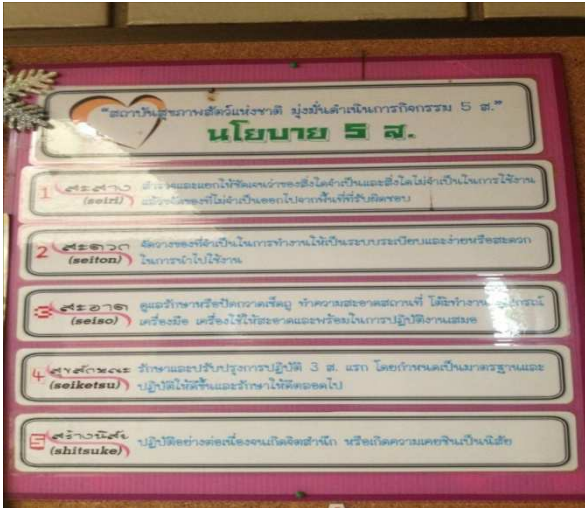 "สถาบันสุขภาพสัตว์แห่งชาติ มุ่งมั่นดำเนินการกิจกรรม 5 ส."
นโยบาย 5 ส.
1 สะสาง สำรวจและแยกให้ชัดเจนว่าของสิ่งใดจำเป็นและสิ่งใดไม่จำเป็นในการใช้งาน
(seiri) แล้วขจัดของที่ไม่จำเป็นออกไปจากพื้นที่ที่รับผิดชอบ
2 สะดวก จัดวางของที่จำเป็นในการทำงานให้เป็นระบบระเบียบและง่ายหรือสะดวก
(seiton) ในการนำไปใช้งาน
3 สะอาด ดูแลรักษาหรือปัดกวาดเช็ดถู ทำความสะอาดสถานที่ โต๊ะทำงาน อุปกรณ์
(seiso) เครื่องมือ เครื่องใช้ให้สะอาดและพร้อมในการปฏิบัติงานเสมอ
4 สุขลักษณะ รักษาและปรับปรุงการปฏิบัติ 3 ส. แรก โดยกำหนดเป็นมาตรฐานและ
(seiketsu) ปฏิบัติให้ดีขึ้นและรักษาให้ดีตลอดไป
5 สร้างนิสัย ปฏิบัติอย่างต่อเนื่องจนเกิดจิตสำนึก หรือเกิดความเคยชินเป็นนิสัย
(shitsuke)